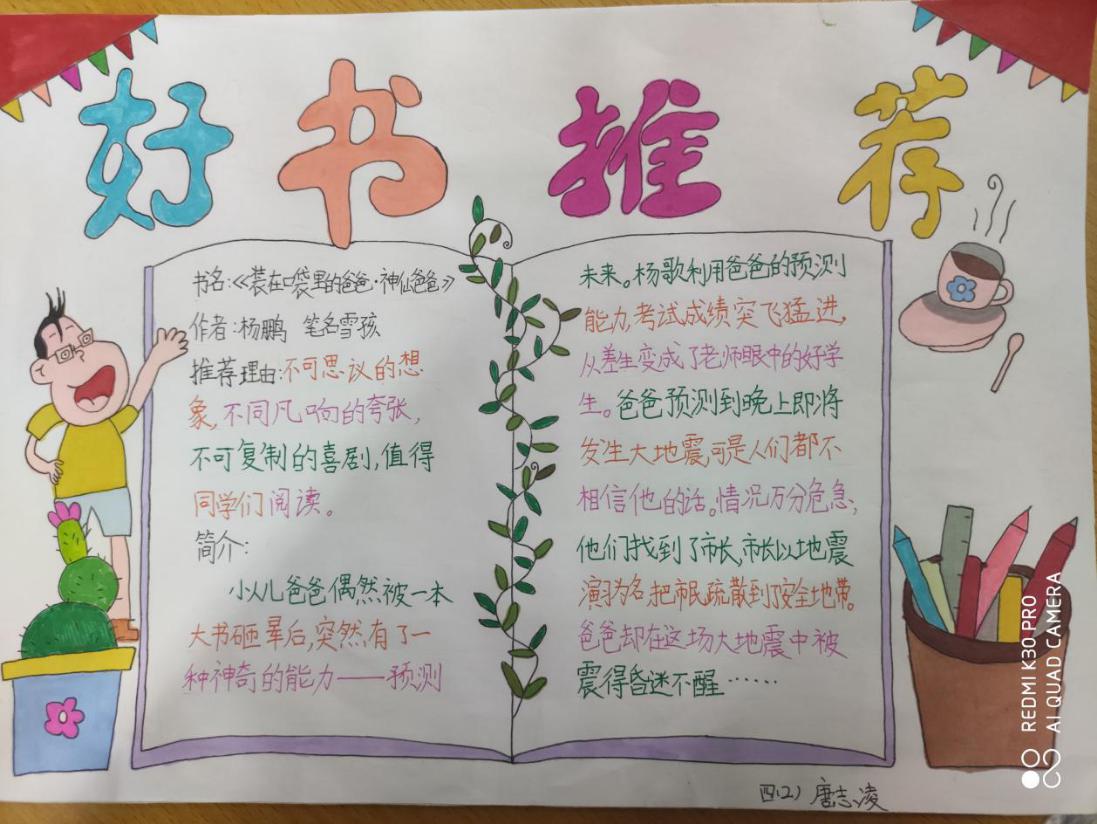 好书推荐
书名:《装在口袋里的爸爸·神仙爸爸》
作者:杨鹏 笔名雪孩
推荐理由:不可思议的想
象,不同凡响的夸张,
不可复制的喜剧,值得
同学们阅读。
简介:
小人儿爸爸偶然被一本
大书砸晕后,突然有了一
种神奇的能力——预测
未来。杨歌利用爸爸的预测
能力,考试成绩突飞猛进,
从差生变成了老师眼中的好学
生。爸爸预测到晚上即将
发生大地震,可是人们都不
相信他的话。情况万分危急,
他们找到了市长,市长以地震
演习为名,把市民疏散到安全地带。
爸爸却在这场大地震中被
震得昏迷不醒……
四(2) 唐志凌
REDMI K30 PRO
AI QUAD CAMERA